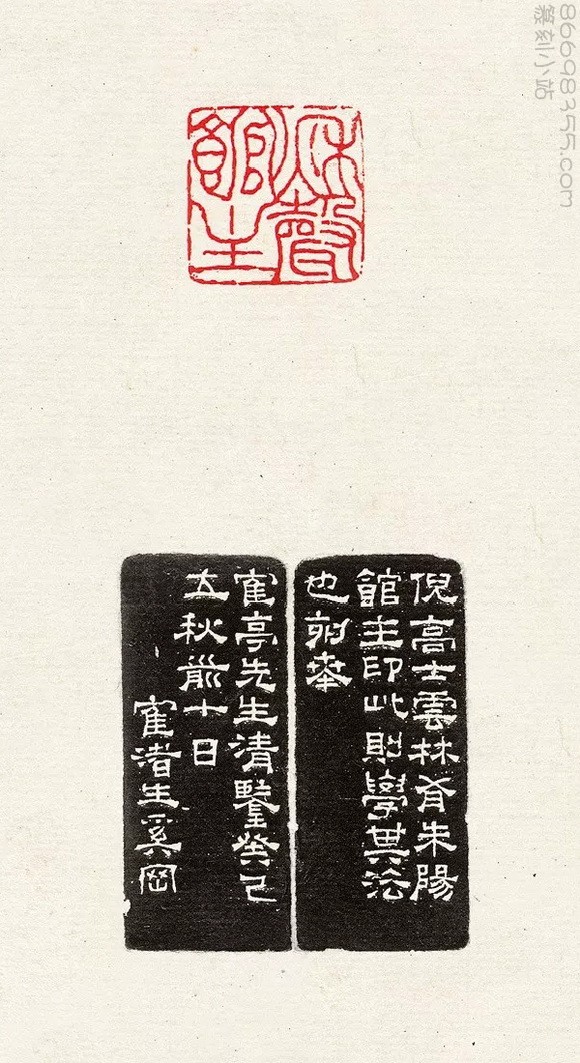 秋聲館主
倪高士雲林有朱陽
館主印此則學其法
也刻奉
寉亭先生清鑒癸巳
立秋前十日
寉渚生奚岡
篆刻小站